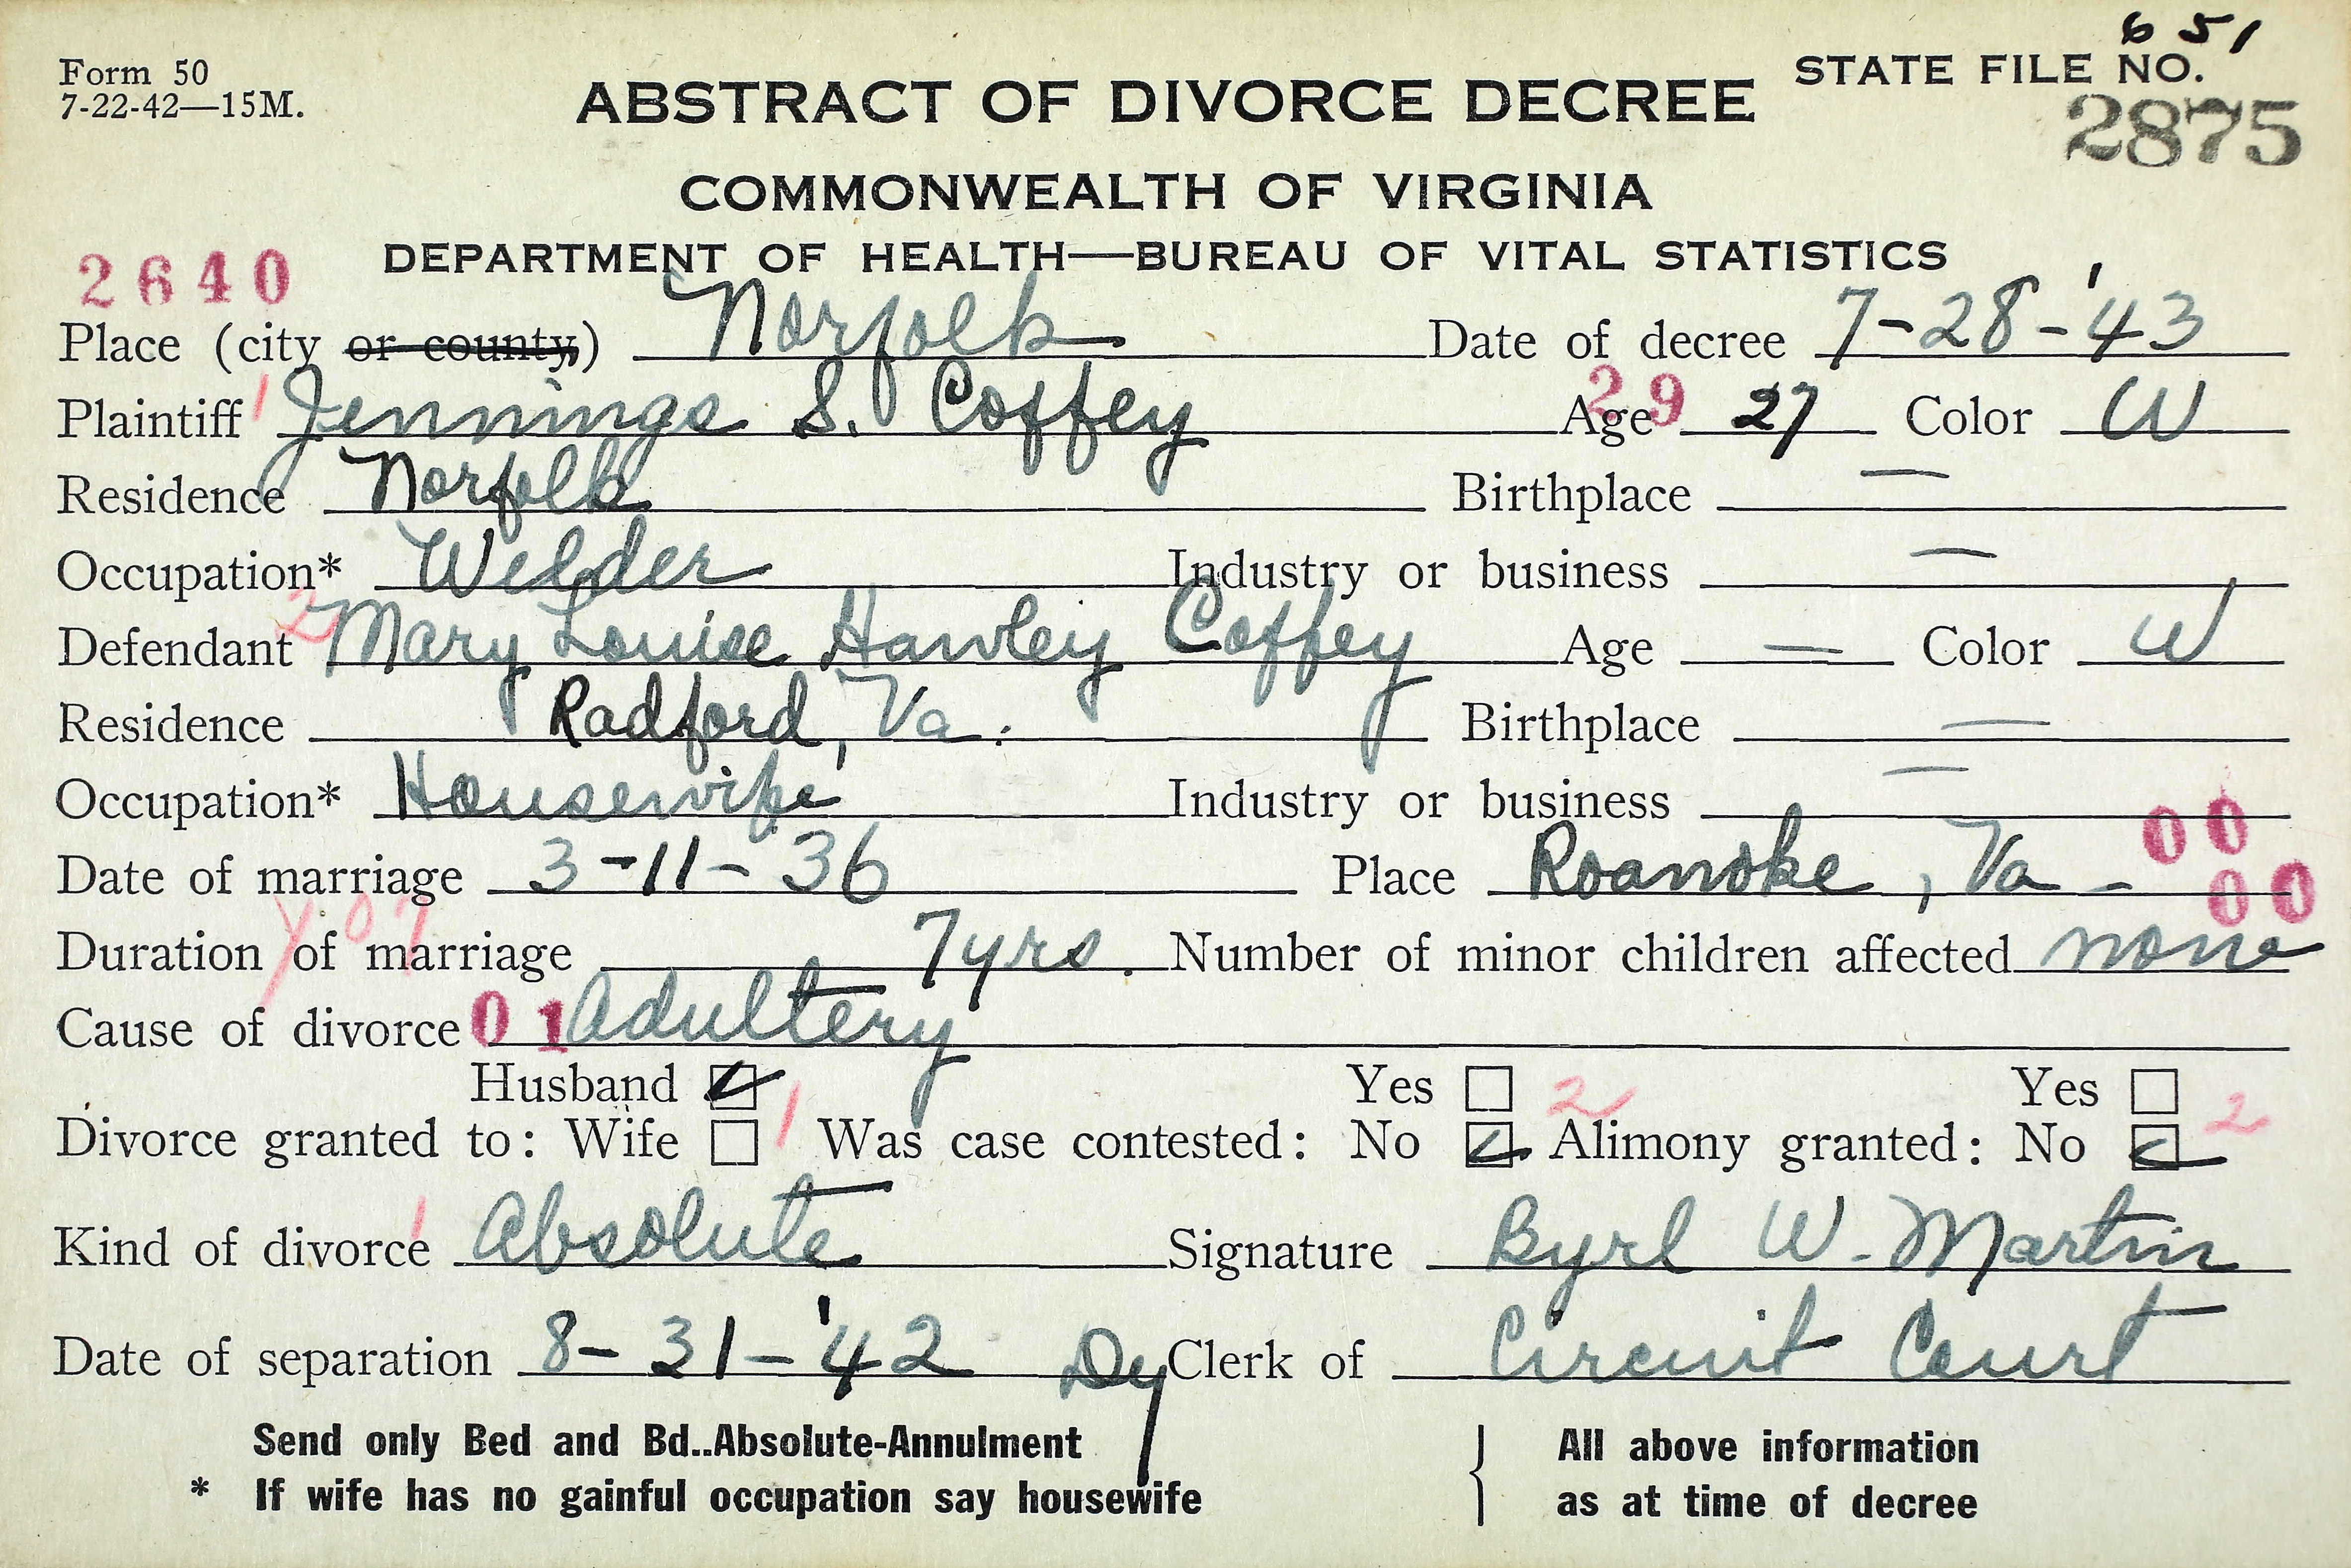 651
Form 50
7-22-42—15M.
ABSTRACT OF DIVORCE DECREE
STATE FILE NO.
2875
COMMONWEALTH OF VIRGINIA
DEPARTMENT OF HEALTH—BUREAU OF VITAL STATISTICS
2640
Place (city or county,) Norfolk Date of decree 7-28-'43
Plaintiff 1 Jennings S. Coffey Age 29 27 Color W
Residence Norfolk Birthplace —
Occupation* Welder Industry or business —
Defendant 2 Mary Louise Hawley Coffey Age — Color W
Residence Radford, Va. Birthplace —
Occupation* Housewife Industry or business —
Date of marriage 3-11-36 Place Roanoke, Va - 00
00
Duration of marriage 7yrs. Number of minor children affected none
Cause of divorce 01 Adultery
Husband ☑ Yes ☐ 2 Yes ☐
Divorce granted to: Wife ☐ 1 Was case contested: No ☑ Alimony granted: No ☑ 2
Kind of divorce 1 Absolute Signature Byrl W. Martin
Date of separation 8-31-'42 Dy Clerk of Circuit Court
Send only Bed and Bd..Absolute-Annulment
* If wife has no gainful occupation say housewife
All above information
as at time of decree